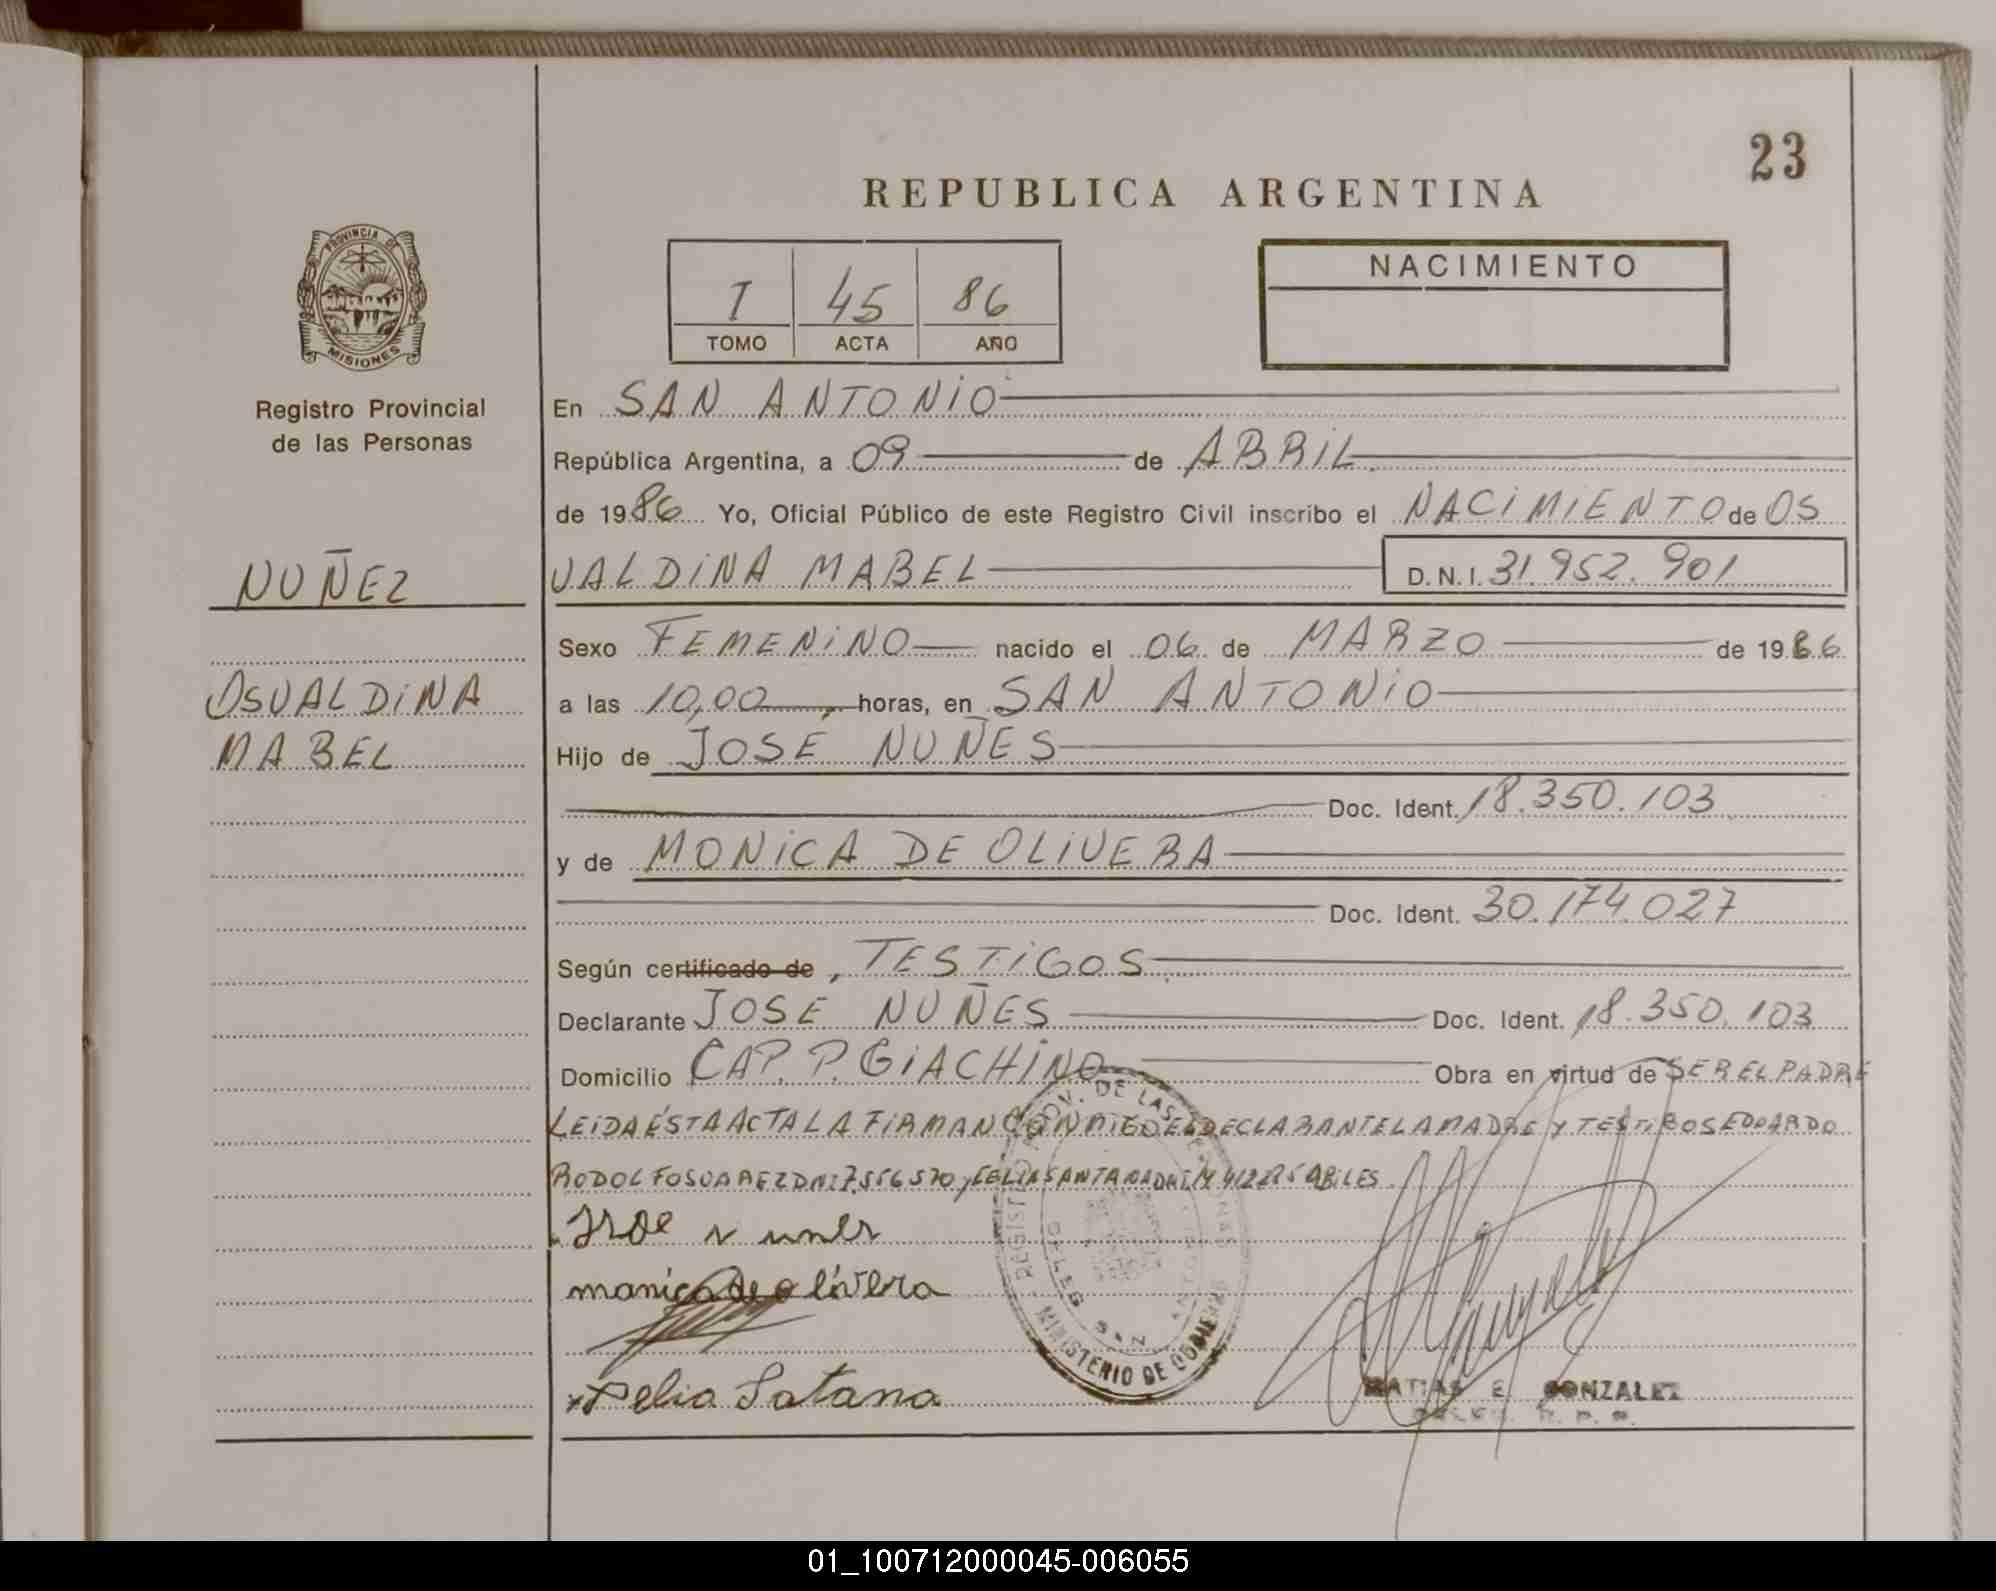 23
REPUBLICA ARGENTINA
PROVINCIA DE
MISIONES
Registro Provincial
de las Personas
I 45 86
TOMO ACTA AÑO
NACIMIENTO
En SAN ANTONIO
República Argentina, a 09 de ABRIL
de 1986 Yo, Oficial Público de este Registro Civil inscribo el NACIMIENTO de OS
VALDINA MABEL D.N.I. 31.952.901
NUÑEZ
OSVALDINA
MABEL
Sexo FEMENINO nacido el 06 de MARZO de 1986
a las 10,00 horas, en SAN ANTONIO
Hijo de JOSÉ NUÑES
Doc. Ident. 18.350.103
y de MONICA DE OLIVERA
Doc. Ident. 30.174.027
Según certificado de, TESTIGOS
Declarante JOSE NUÑES Doc. Ident. 18.350.103
Domicilio CAP. P. GIACHINO Obra en virtud de SER EL PADRE
LEIDA ÉSTA ACTA LA FIRMAN CONMIGO EL DECLARANTE LA MADRE Y TESTIGOS EDUARDO
RODOLFO SUAREZ DNI 7.556.570 y CELIA SANTANA ABILES
manica de olivera
Celia Satana
MINISTERIO DE GOBIERNO
MATIAS E. GONZALEZ
01_100712000045-006055